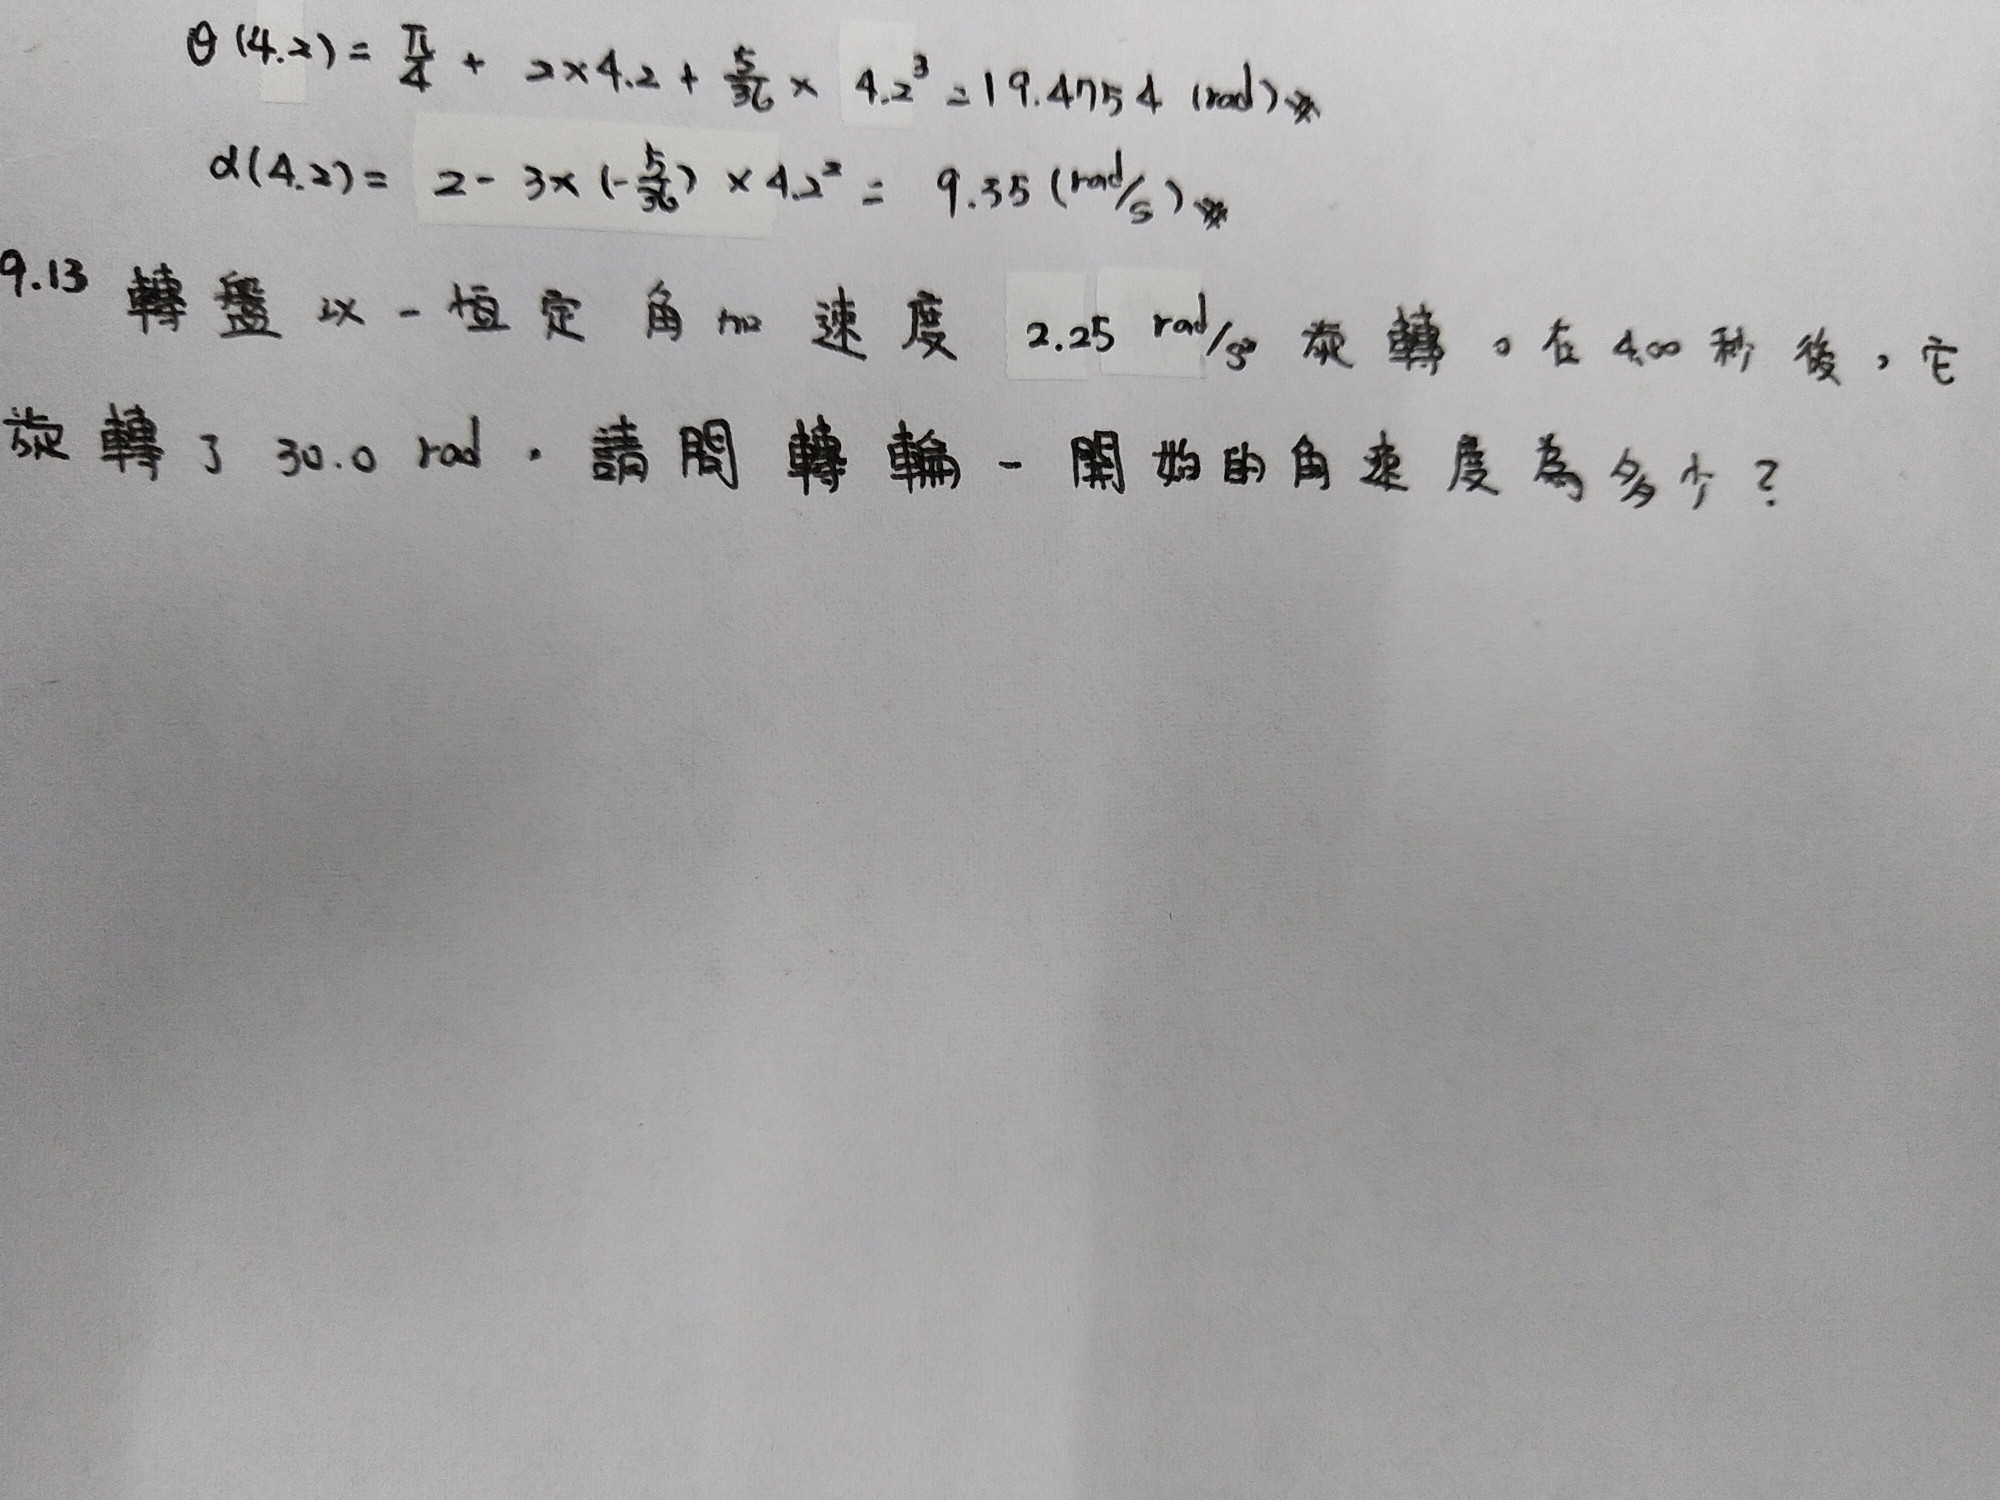 θ(4.2) = π/4 + 2×4.2 + 5/36 × 4.2³ = 19.4754 (rad)※
α(4.2) = 2 - 3×(-5/36) × 4.2² = 9.35 (rad/s)※
9.13 轉盤以一恒定角加速度 2.25 rad/s² 旋轉。在 4.00 秒後，它
旋轉了 30.0 rad。請問轉輪一開始的角速度為多少？